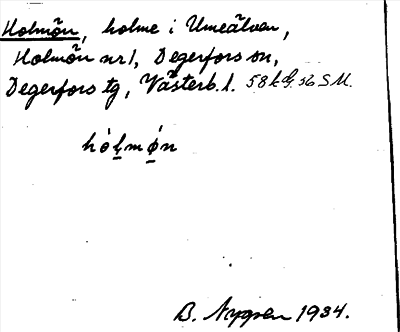 Holmön, holme i Umeälven,
Holmön nr 1, Degerfors sn,
Degerfors tg, Västerb. l. 58 k d. 56 S M.
hólmø̣n
B. Nygren 1934.